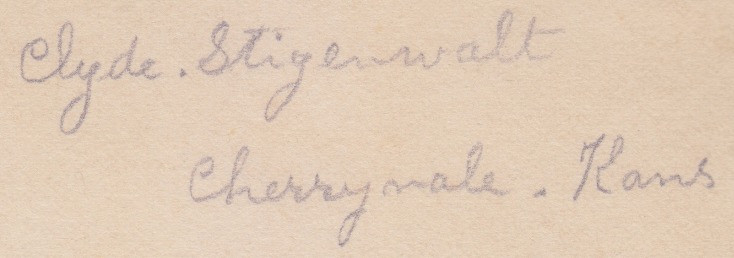 Clyde. Stigenwalt
Cherryvale. Kans